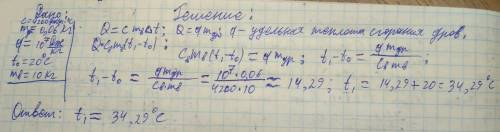 Дано:
c=4200
m=0,06 кг
q=10⁷
t₀=20°C
mв=10 кг
Решение:
Q=c mв Δt; Q=q mдр, q - удельная теплота сгорания дров,
Q=Cв mв(t₁-t₀);
Cв mв(t₁-t₀) = q mдр; t₁-t₀ = q mдр / Cв mв;
t₁-t₀ = q mдр / Cв mв = 10⁷·0,06 / 4200·10 ≈ 14,29; t₁ = 14,29+20=34,29°C
Ответ: t₁= 34,29°C.